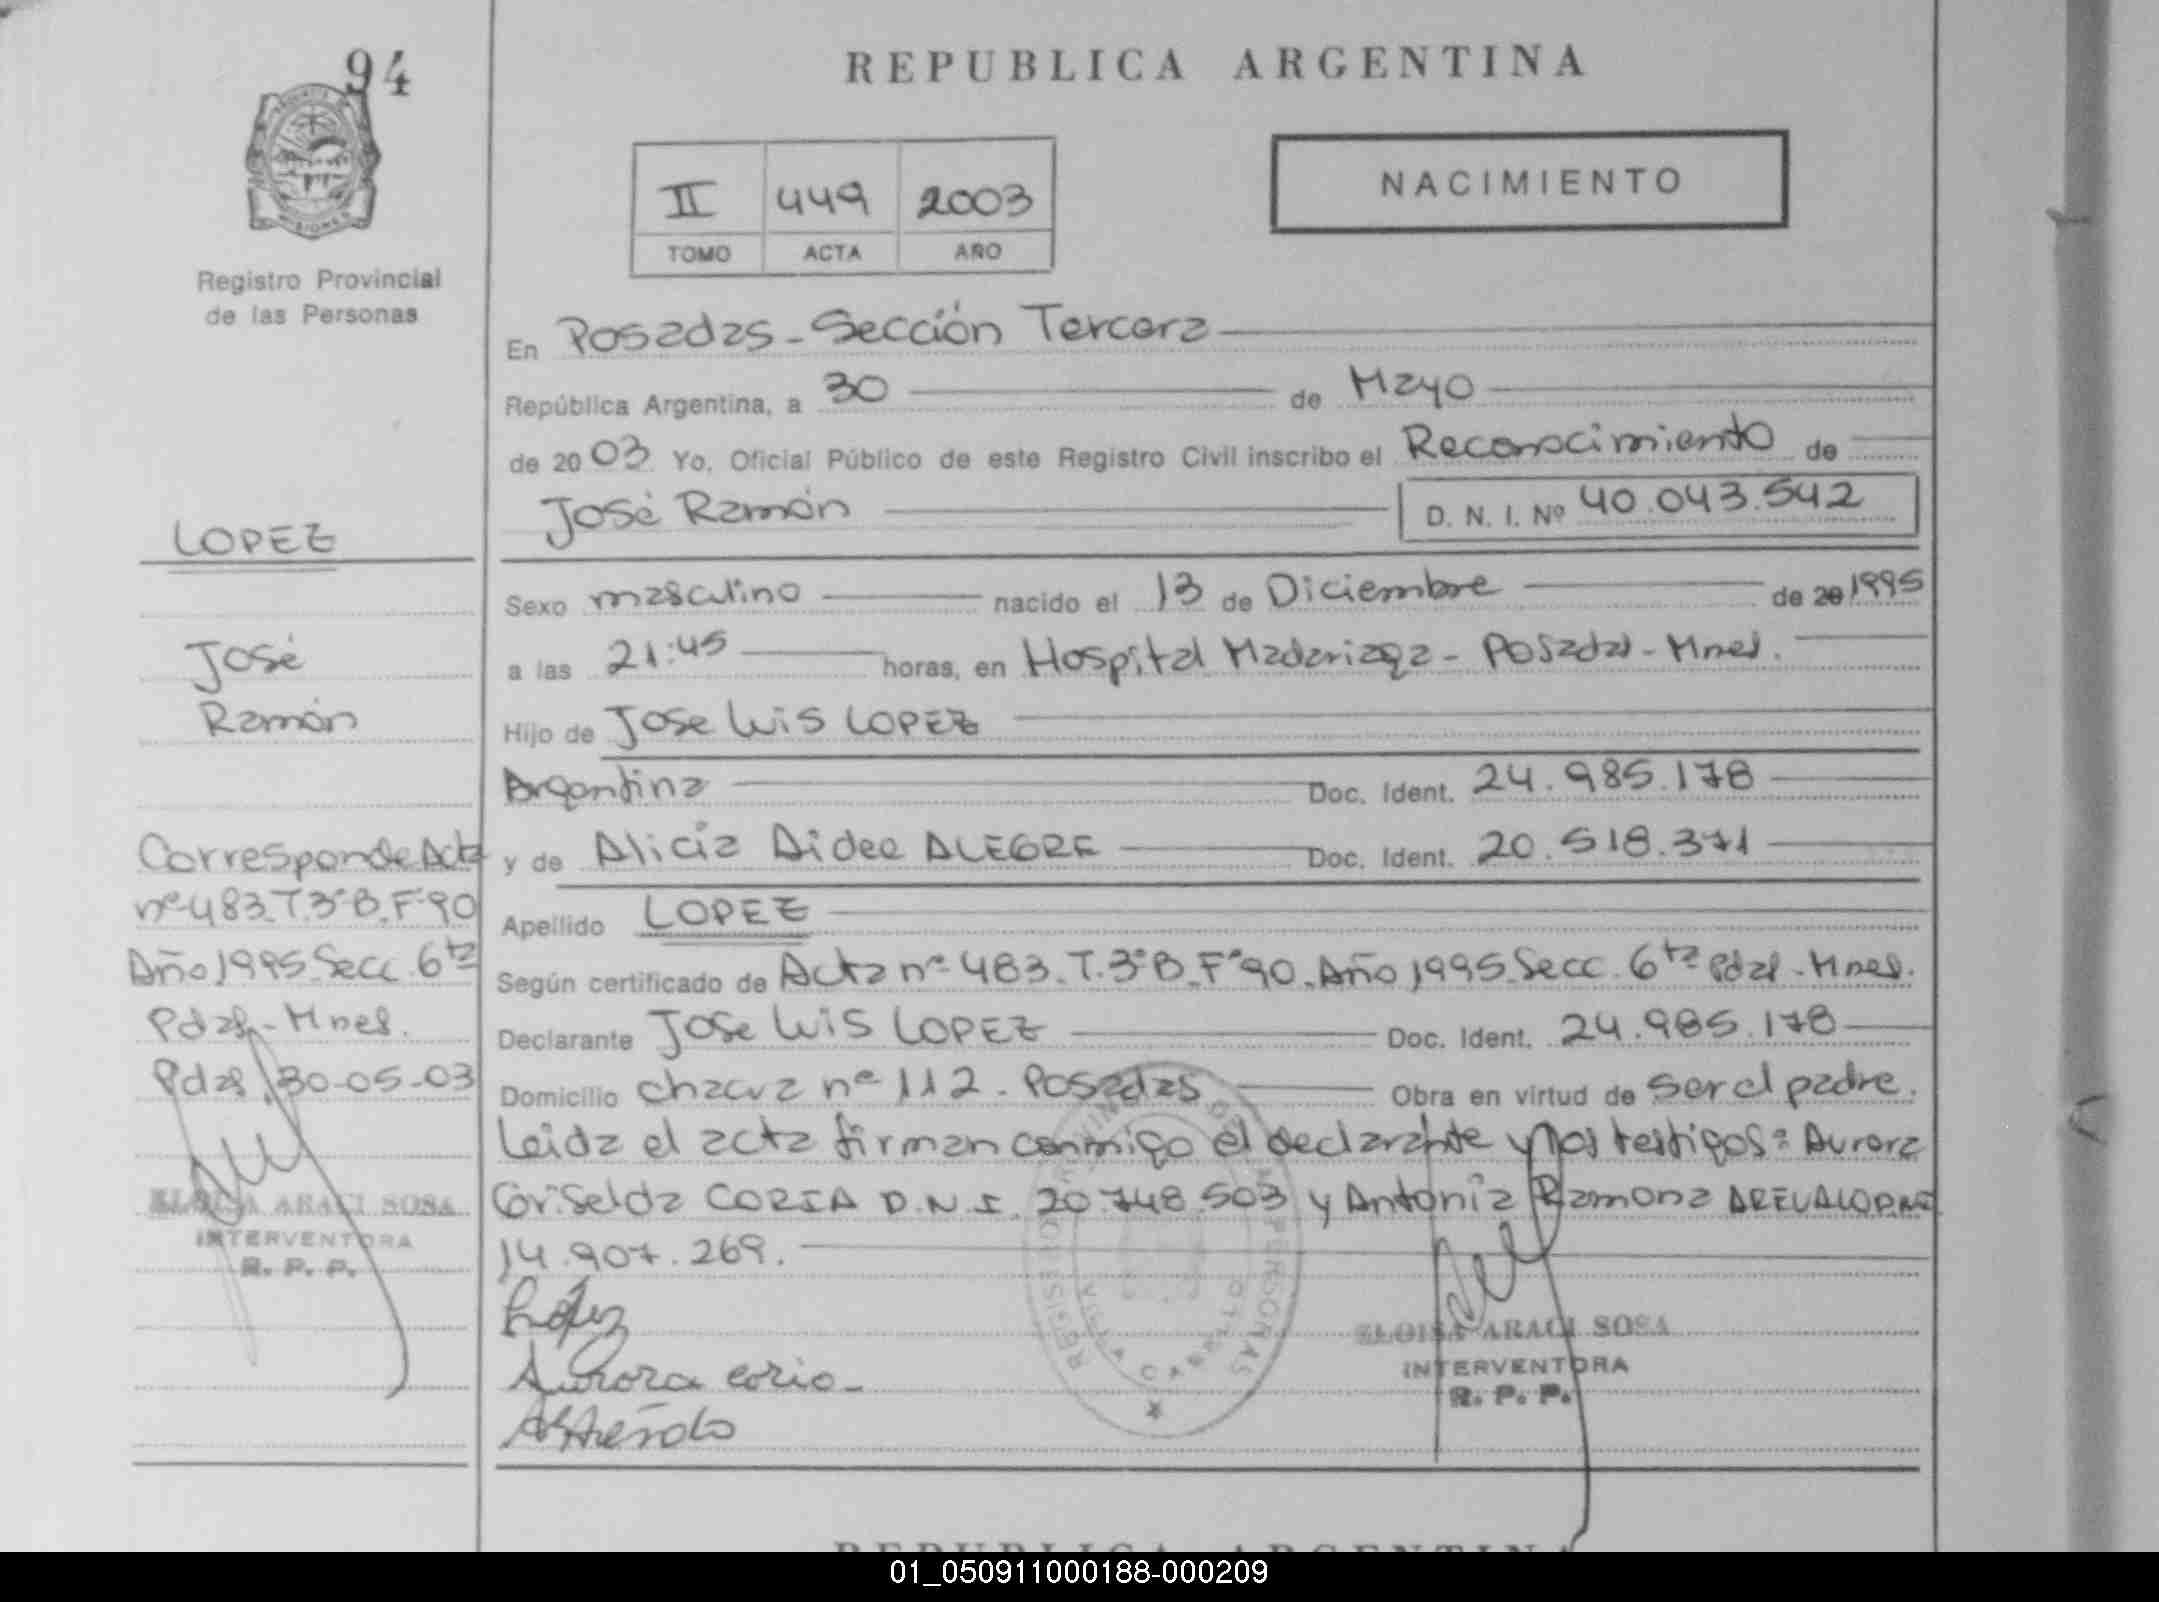 94
REPUBLICA ARGENTINA
II 449 2003
TOMO ACTA AÑO
NACIMIENTO
Registro Provincial
de las Personas
En Posadas - Sección Tercera
República Argentina, a 30 de Mayo
de 2003 Yo, Oficial Público de este Registro Civil inscribo el Reconocimiento de
José Ramón D. N. I. Nº 40.043.542
LOPEZ
José
Ramón
Sexo masculino nacido el 13 de Diciembre de 20 1995
a las 21:45 horas, en Hospital Madariaga - Posadas - Mnes.
Hijo de Jose Luis LOPEZ
Argentina Doc. Ident. 24.985.178
y de Alicia Aidee ALEGRE Doc. Ident. 20.518.371
Apellido LOPEZ
Según certificado de Acta nº 483. T. 3º B. Fº 90. Año 1995. Secc. 6ta Pdas - Mnes.
Declarante Jose Luis LOPEZ Doc. Ident. 24.985.178
Domicilio chacra nº 112 - Posadas Obra en virtud de ser el padre.
Leida el acta firman conmigo el declarante y los testigos: Aurora
Griselda CORIA D.N.I. 20.748.503 y Antonia Ramona AREVALO DNI
14.907.269.
López
Aurora coria -
Corresponde Acta
nº 483. T. 3º B. Fº 90
Año 1995. Secc. 6ta
Pdas - Mnes.
Pdas, 30-05-03
ELOISA ARACI SOSA
INTERVENTORA
R. P. P.
ELOISA ARACI SOSA
INTERVENTORA
R. P. P.
REPUBLICA ARGENTINA
01_050911000188-000209